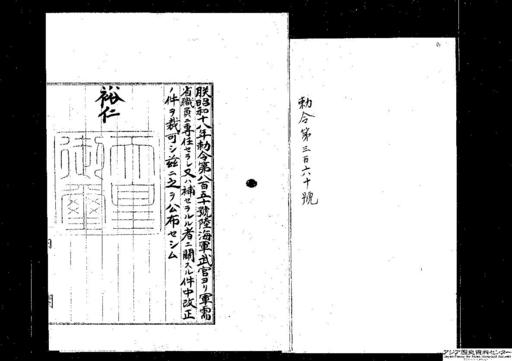 勅令第三百六十號
朕昭和十八年勅令第八百五十號陸海軍武官ヨリ軍需
省職員ニ専任セラレ又ハ補セラルル者ニ關スル件中改正
ノ件ヲ裁可シ茲ニ之ヲ公布セシム
裕仁
天皇
御璽
アジア歴史資料センター